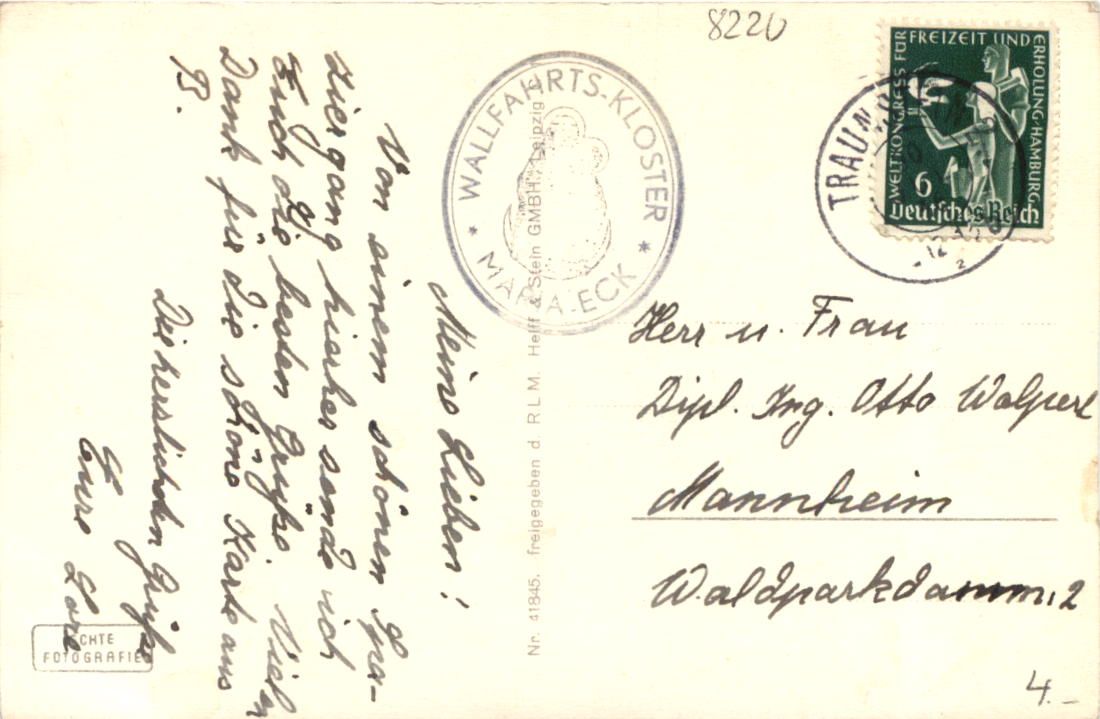 8220
WELTKONGRESS FÜR FREIZEIT UND ERHOLUNG·HAMBURG
6
Deutsches Reich
TRAUN
12
WALLFAHRTS-KLOSTER
* MARIA-ECK *
Meine Lieben!
Von einem schönen Spa-
ziergang hierher sende ich
Euch die besten Grüße. Vielen
Dank für die schöne Karte aus
B.
Die herzlichsten Grüße
Eure Lore
ECHTE
FOTOGRAFIE
Nr. 41845. freigegeben d. RLM. Helff & Stein GMBH. Leipzig
Herr u. Frau
Dipl. Ing. Otto Walperl
Mannheim
Waldparkdamm. 2
4.–